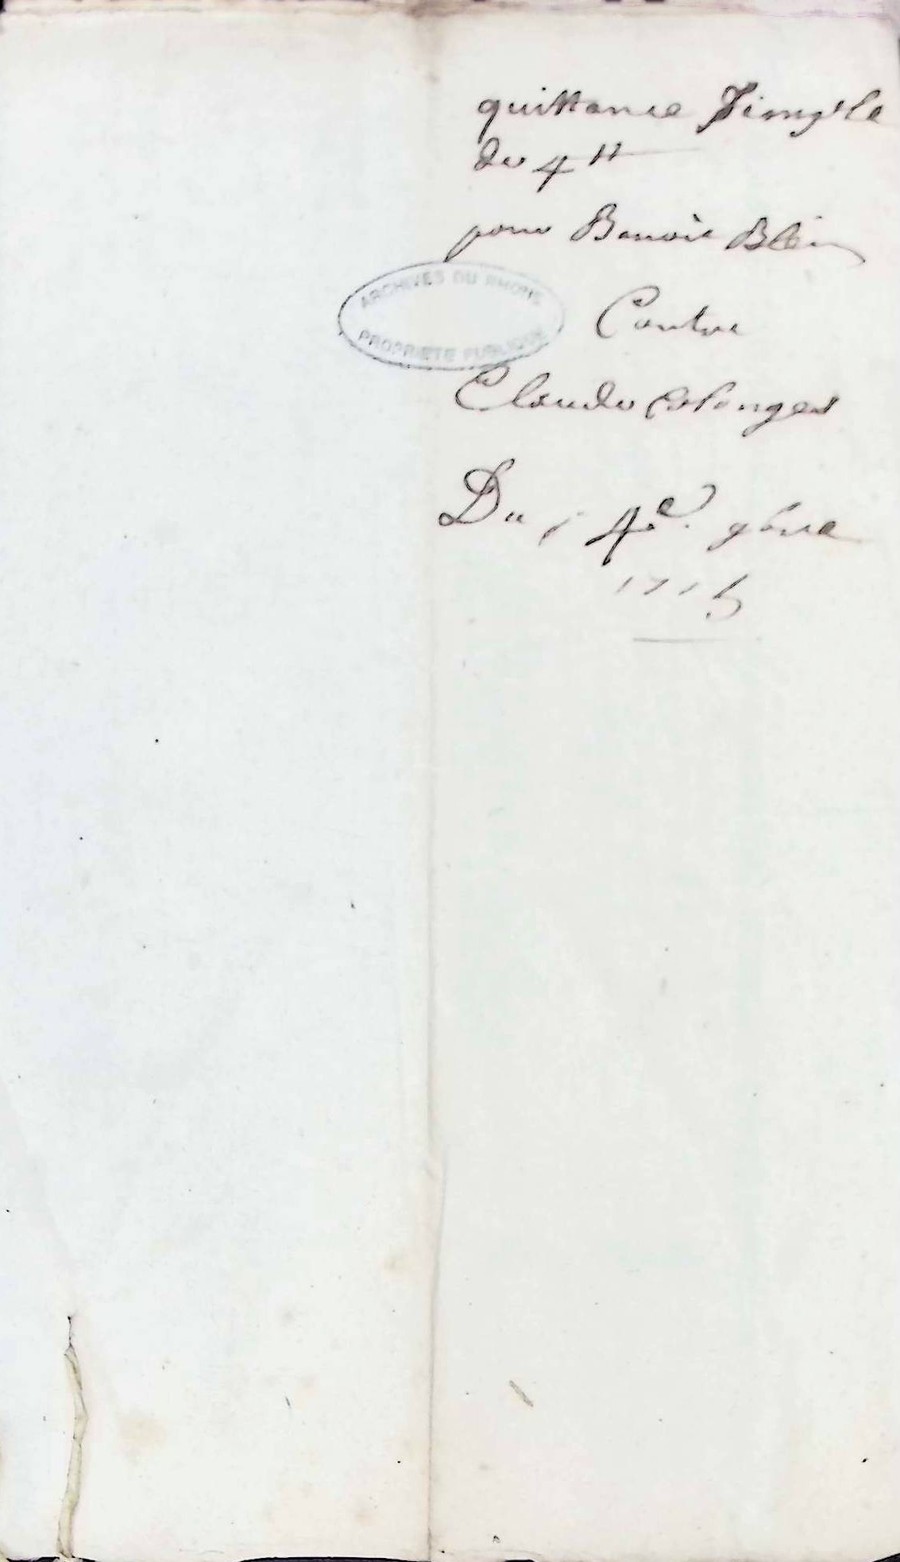 quittance simple
de 4 ₶
pour Benoit Blein
ARCHIVES DU RHONE
PROPRIETE PUBLIQUE
Contre
Claude
Du 14e. 9bre
1715